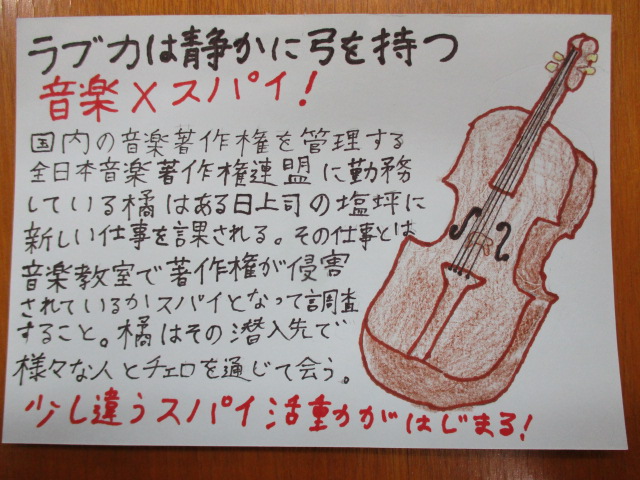 ラブカは静かに弓を持つ
音楽×スパイ!
国内の音楽著作権を管理する
全日本音楽著作権連盟に勤務
している橘はある日上司の塩坪に
新しい仕事を課される。その仕事とは
音楽教室で著作権が侵害
されているかスパイとなって調査
すること。橘はその潜入先で
様々な人とチェロを通じて会う。
少し違うスパイ活動かがはじまる!